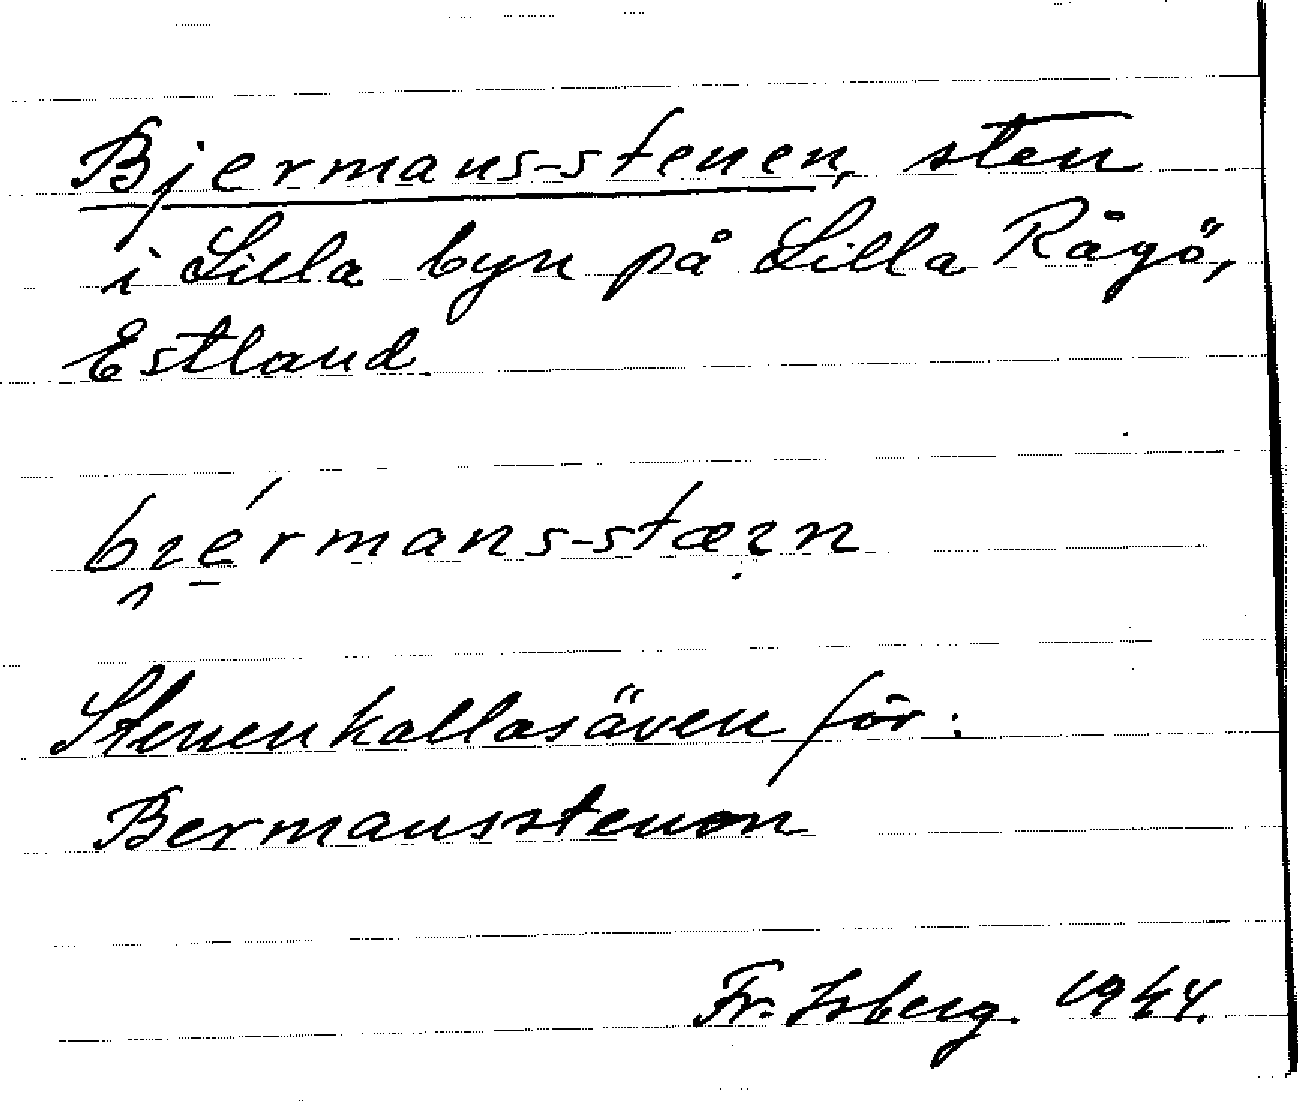 Bjermans-stenen, sten
i Lilla byn på Lilla Rågö,
Estland.
bɪ̯é̱rmans-stæɪ̣n
Stenen kallas även för:
Bermansstenen
Fr. Isberg. 1944.